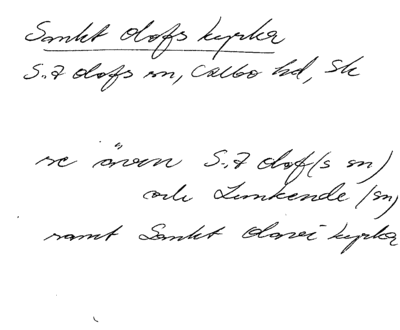 Sankt Olofs kyrka
S:t Olofs sn, Albo hd, Sk
se även S:t Olof (s sn)
och Lunkende (sn)
samt Sankt Olovi kyrka